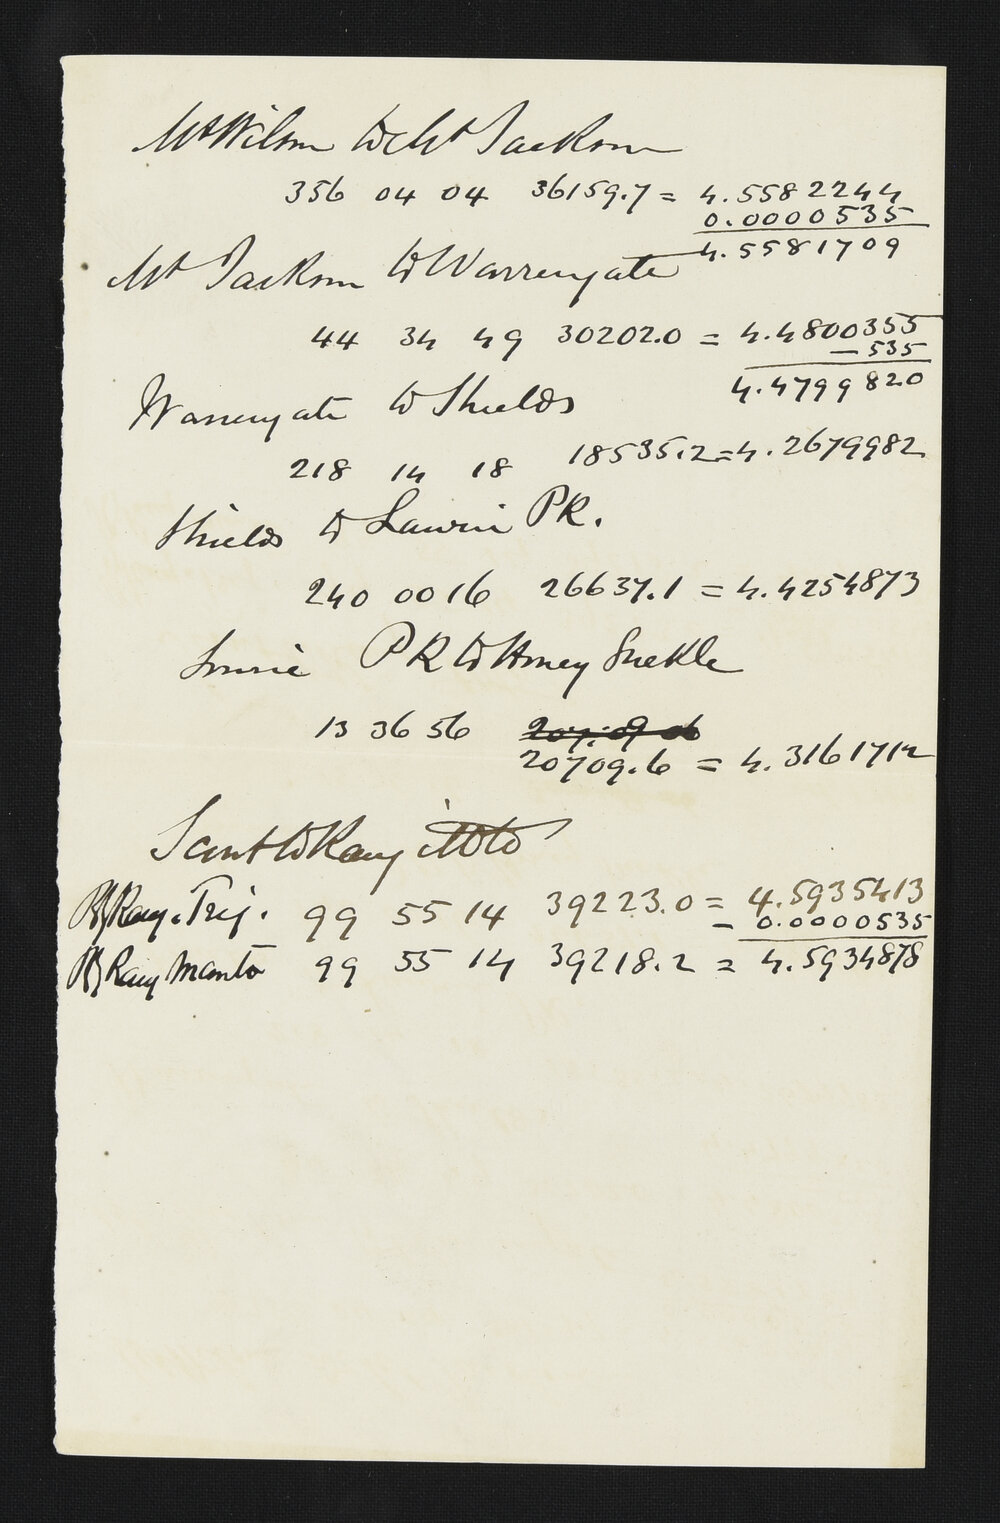 Mt Wilson to Mt Jackson
356 04 04 36159.7 = 4.5582244
0.0000535
4.5581709
Mt Jackson to Warrenyate
44 34 49 30202.0 = 4.4800355
— 535
4.4799820
Warrenyate to Shields
218 14 18 18535.2 = 4.2679982
Shields to Lawrie PR.
240 00 16 26637.1 = 4.4254873
Lawrie PR to Honey Suckle
13 36 56
20709.6 = 4.3161712
to Rangitoto
By Rang. Trig. 99 55 14 39223.0 = 4.5935413
– 0.0000535
By Rang Manto 99 55 14 39218.2 = 4.5934878